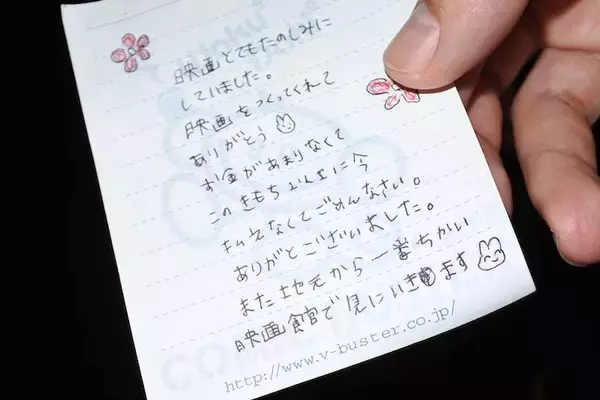 映画とてもたのしみに
していました。
映画をつくってくれて
ありがとう
お金があまりなくて
このきもち に今
払えなくてごめんなさい。
ありがとございました。
また地元から一番ちかい
映画館で見にいきます
http://www.v-buster.co.jp/